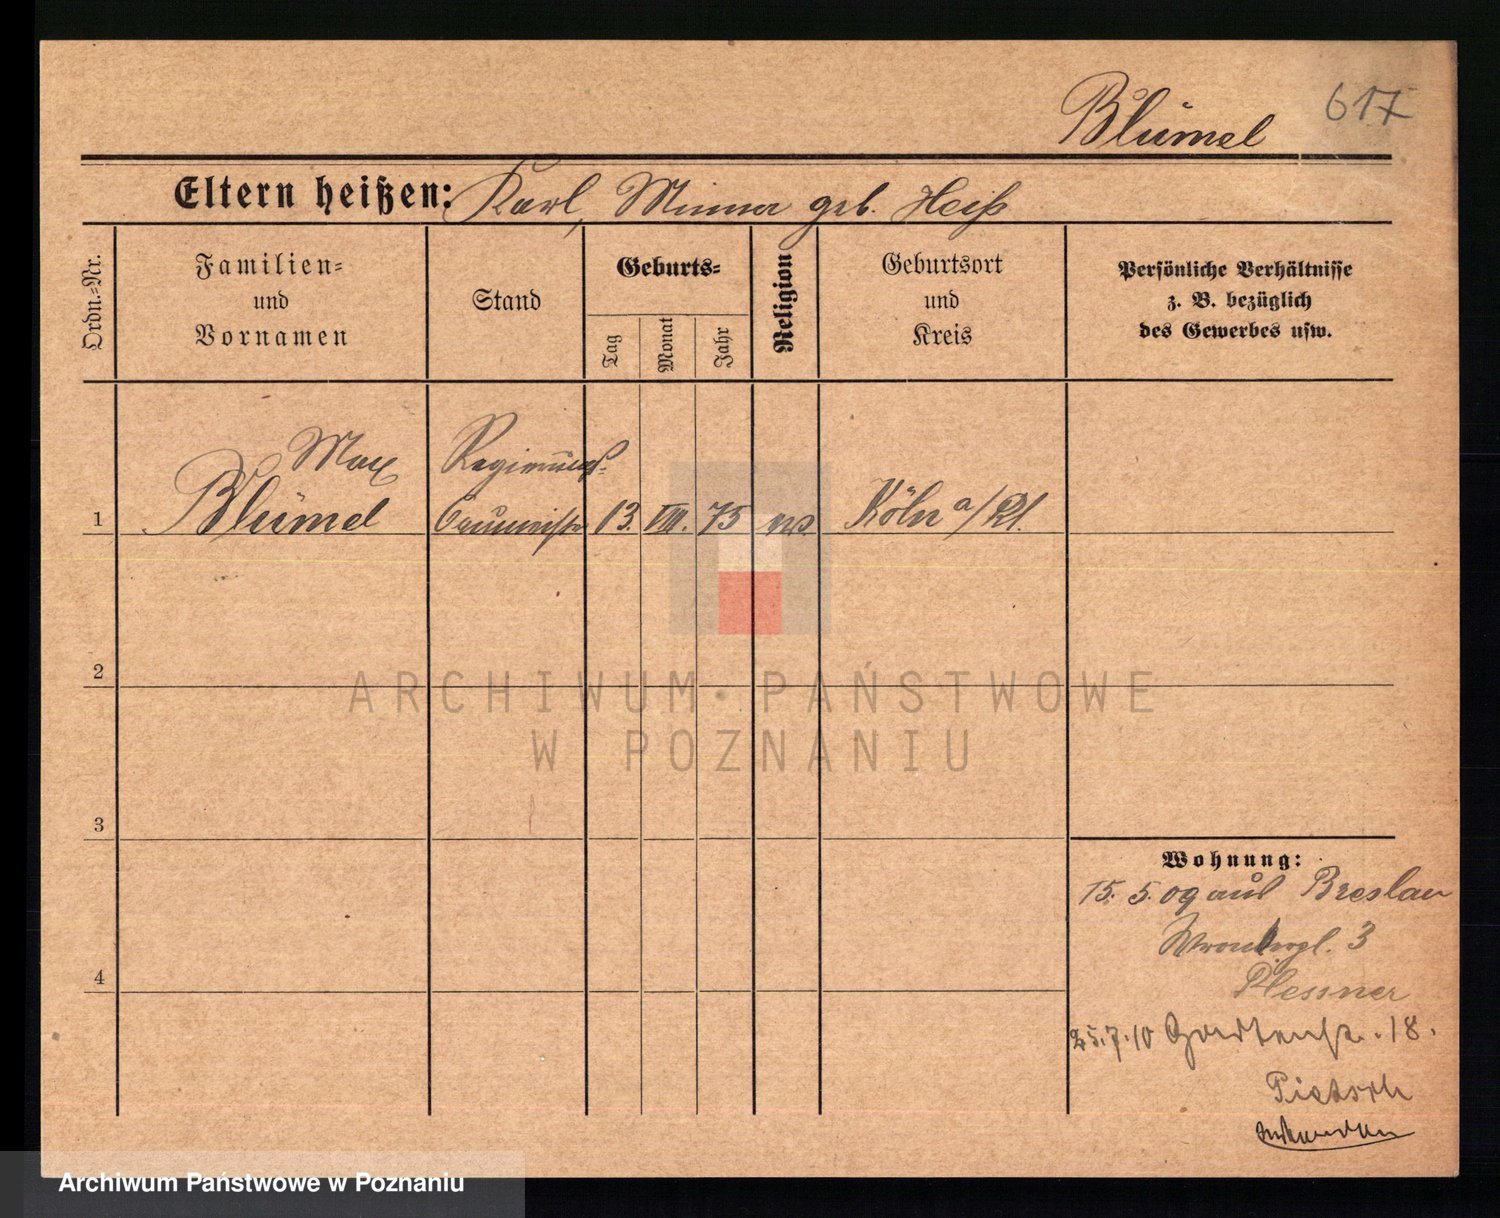 Blümel 617
Eltern heißen: Karl, Minna geb. Heiß
Ordn.-Nr.
Familien-
und
Vornamen
Stand
Geburts-
Tag
Monat
Jahr
Religion
Geburtsort
und
Kreis
Persönliche Verhältnisse
z. B. bezüglich
des Gewerbes usw.
Max Regierungs-
1 Blümel Baumeister 13. VIII. 75 Köln a/Rh.
2
3
4
Wohnung:
15. 5. 09 aus Breslau
3
Plessner
25.7.10 Gartenstr. 18.
Pietsch
ARCHIWUM PAŃSTWOWE
W POZNANIU
Archiwum Państwowe w Poznaniu